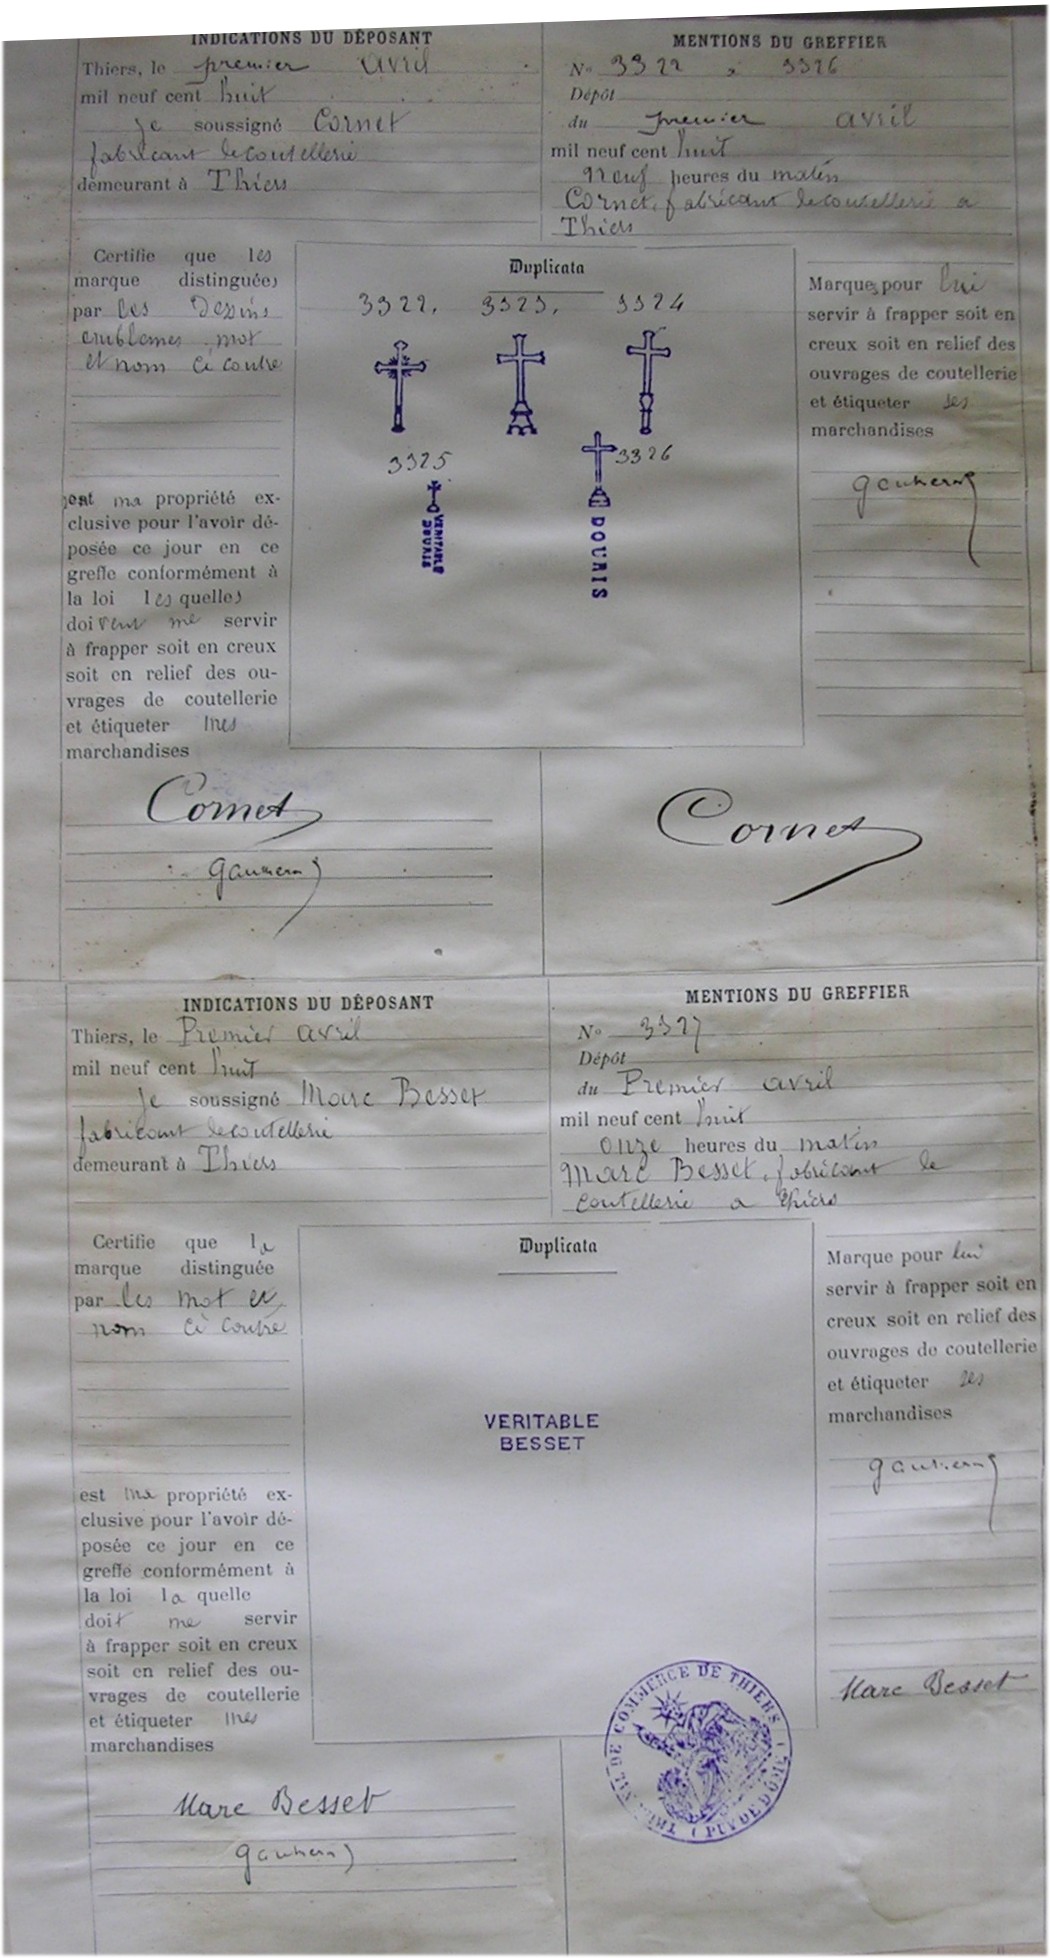 INDICATIONS DU DÉPOSANT
Thiers, le premier avril
mil neuf cent huit
je soussigné Cornet
fabricant de coutellerie
demeurant à Thiers
MENTIONS DU GREFFIER
No 3322 à 3326
Dépôt
du premier avril
mil neuf cent huit
neuf heures du matin
Cornet, fabricant de coutellerie a
Thiers
Certifie que les
marque distinguées
par les dessins
emblemes mot
et nom ci contre
sont ma propriété ex-
clusive pour l'avoir dé-
posée ce jour en ce
greffe conformément à
la loi lesquelles
doivent me servir
à frapper soit en creux
soit en relief des ou-
vrages de coutellerie
et étiqueter mes
marchandises
Duplicata
3322, 3323, 3324
3325 3326
VERITABLE
DOURIS
DOURIS
Marques pour lui
servir à frapper soit en
creux soit en relief des
ouvrages de coutellerie
et étiqueter ses
marchandises
Cornet
Cornet
INDICATIONS DU DÉPOSANT
Thiers, le Premier avril
mil neuf cent huit
je soussigné Marc Besset
fabricant de coutellerie
demeurant à Thiers
MENTIONS DU GREFFIER
No 3327
Dépôt
du Premier avril
mil neuf cent huit
onze heures du matin
Marc Besset, fabricant de
coutellerie a thiers
Certifie que la
marque distinguée
par les mot et
nom ci contre
est ma propriété ex-
clusive pour l'avoir dé-
posée ce jour en ce
greffe conformément à
la loi laquelle
doit me servir
à frapper soit en creux
soit en relief des ou-
vrages de coutellerie
et étiqueter mes
marchandises
Duplicata
VERITABLE
BESSET
Marque pour lui
servir à frapper soit en
creux soit en relief des
ouvrages de coutellerie
et étiqueter ses
marchandises
Marc Besset
TRIBUNAL DE COMMERCE DE THIERS
(PUY DE DÔME)
Marc Besset